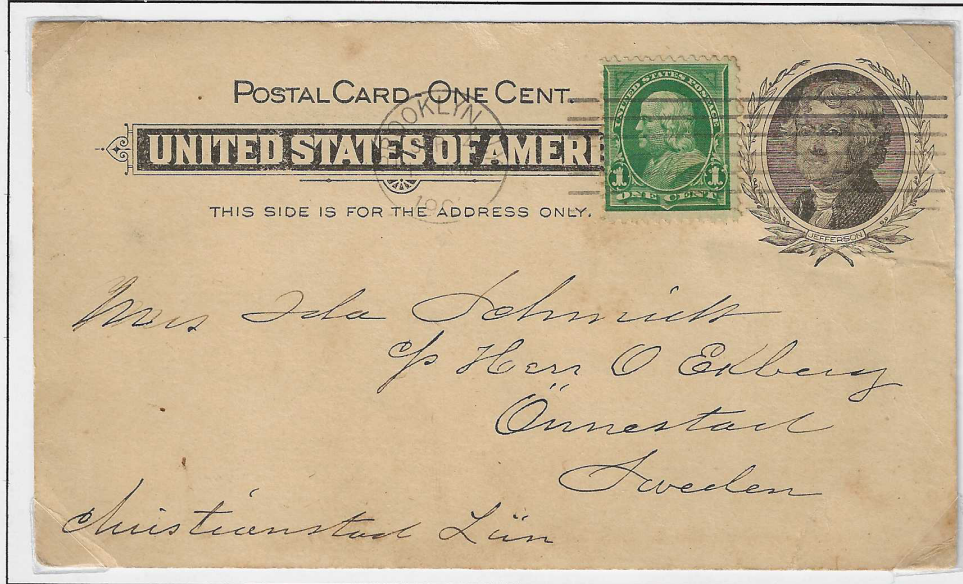 POSTAL CARD - ONE CENT.
UNITED STATES OF AMERI
THIS SIDE IS FOR THE ADDRESS ONLY.
BROOKLYN
UNITED STATES POSTAGE
1 1
ONE CENT
JEFFERSON
Mrs Ida Schmidt
c/o Herr O Ekberg
Önnestad
Sweden
Christianstad Län